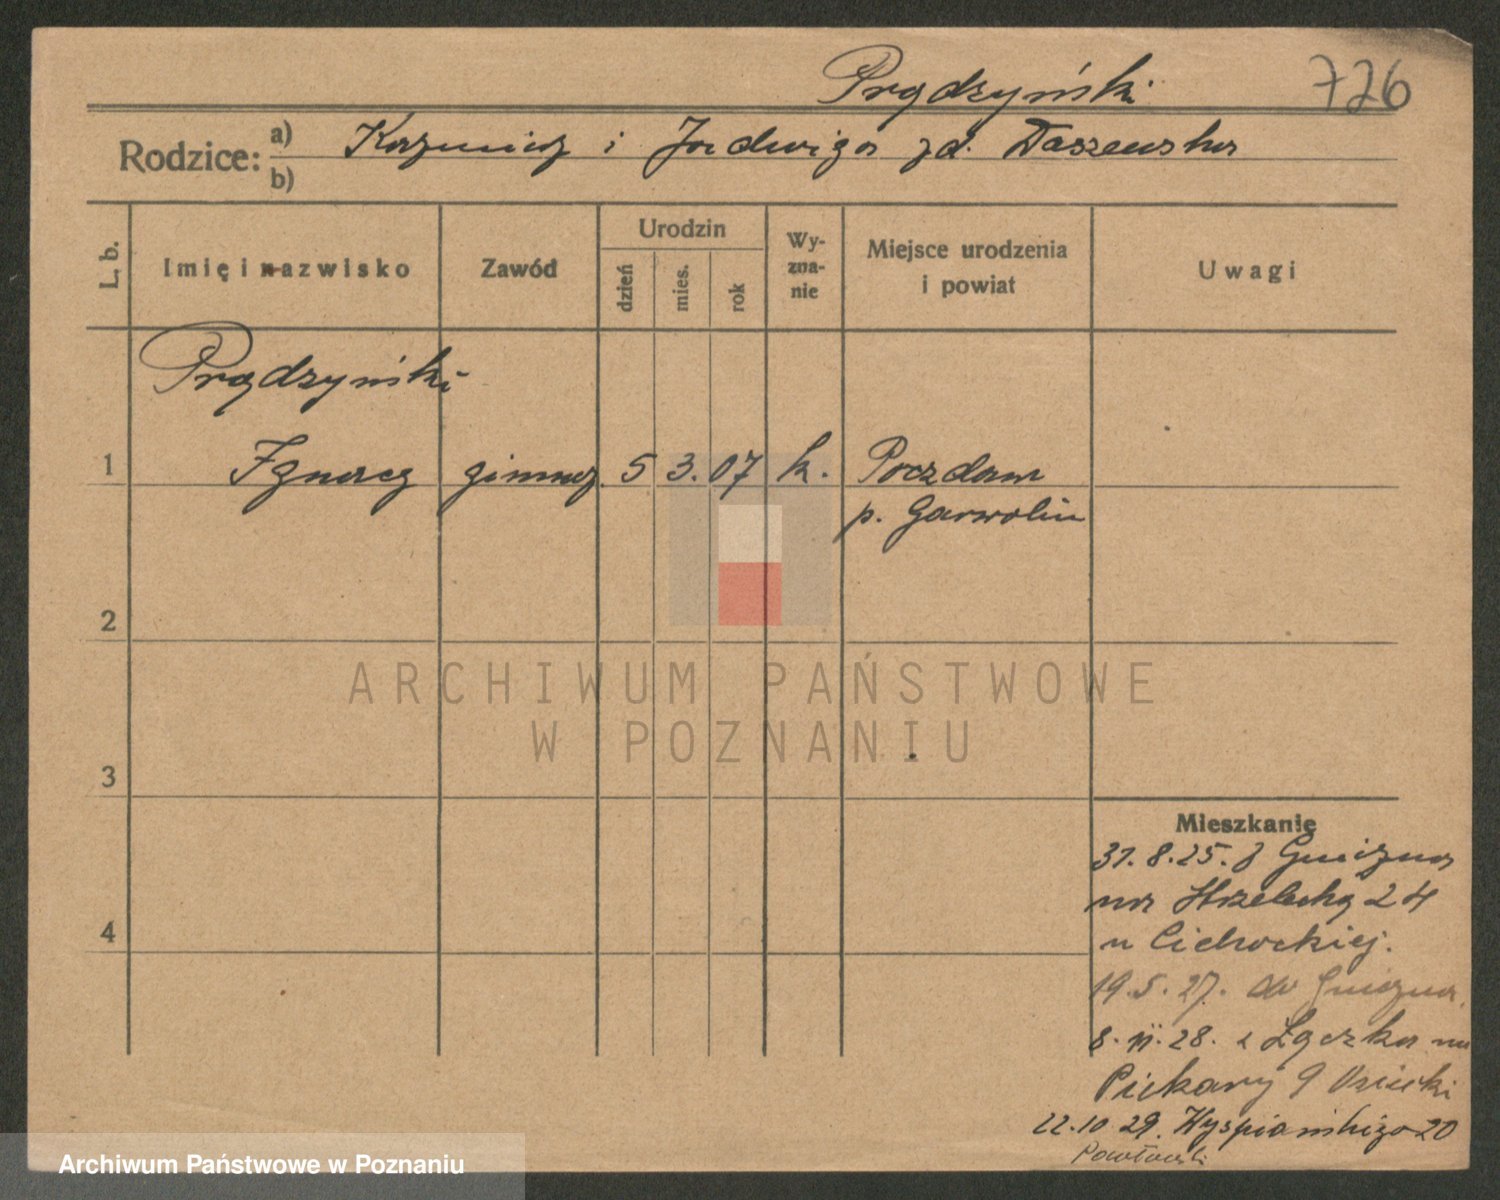 Prądzyński 726
Rodzice: a) Kazmierz i Jadwiga zd. Daszewska
b)
L. b. Imię i nazwisko Zawód Urodzin dzień mies. rok Wy-zna-nie Miejsce urodzenia i powiat Uwagi
Prądzyński
1 Ignacy gimnaz. 5 3. 07 k. Poczdam
p. Garwolin
2
ARCHIWUM PAŃSTWOWE
W POZNANIU
3
Mieszkanie
31.8.25. z Gniezna
na Strzelecką 24
4 u Cichockiej.
19.5.27. do Gniezna.
8.11.28. z Łączka na
Piekary 9 Osiecki
22.10 29. Wyspiańskiego 20
Pawłowski
Archiwum Państwowe w Poznaniu